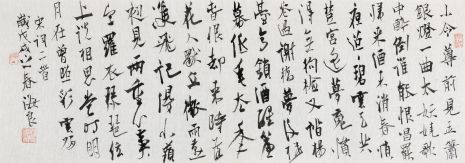 小令尊前見玉簫
銀燈一曲太妖嬈歌
中醉倒誰能恨唱罷
歸來酒未消春悄悄
夜迢迢碧雲天共
楚宮遥夢魂慣
得無拘檢又踏楊
花過謝橋夢後樓
臺高鎖酒醒簾
幕低垂去年春
恨却來時落
花人獨立微雨燕
雙飛記得小蘋
初見兩重心
字羅衣琵琶弦
上説相思當時明
月在曾照彩雲歸
歲戊戌之春